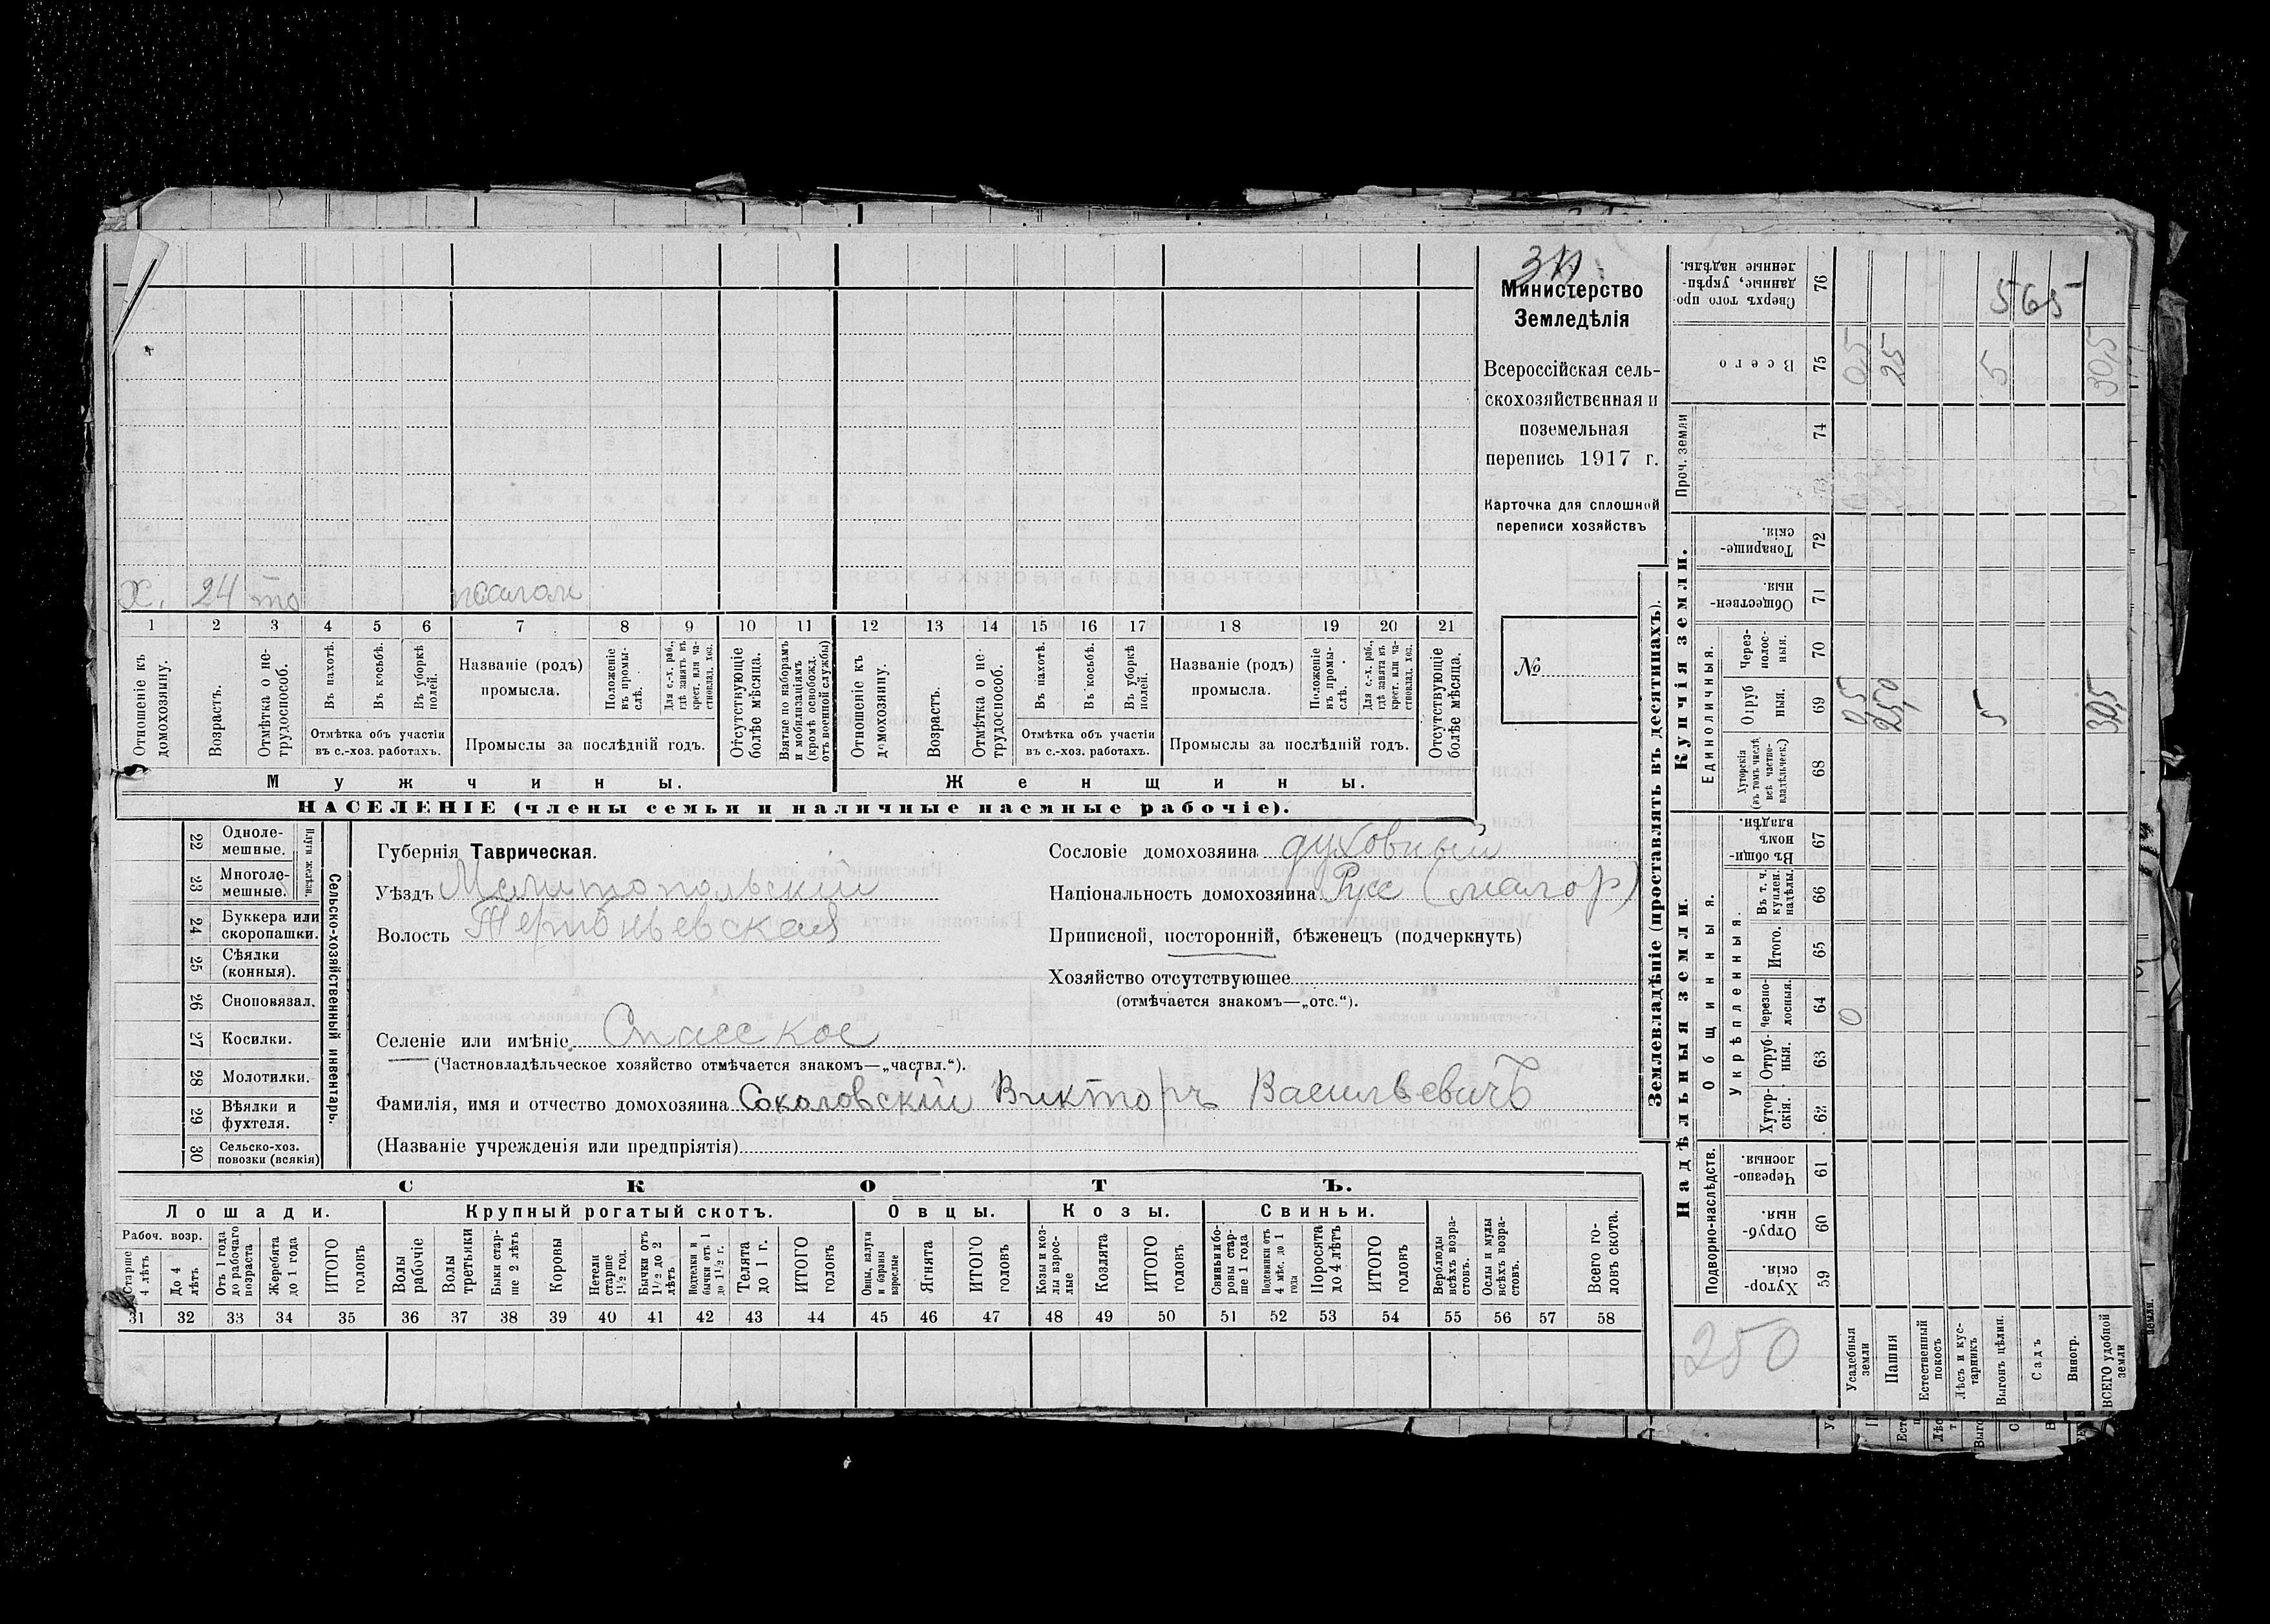 Министерство
Земледѣлія
Всероссійская сель-
скохозяйственная и
поземельная
перепись 1917 г.
Карточка для сплошной
переписи хозяйствъ
№
Х. 24
1 2 3 4 5 6 7 8 9 10 11 12 13 14 15 16 17 18 19 20 21
Отношеніе къ домохозяину.
Возрастъ.
Отмѣтка о не-трудоспособ.
Въ пахотѣ.
Въ косьбѣ.
Въ уборкѣ полей.
Отмѣтка объ участіи
въ с.-хоз. работахъ.
Названіе (родъ)
промысла.
Положеніе въ промы-слѣ.
Для с.-х. раб., гдѣ занятъ въ крест. или ча-стновлад. хоз.
Промыслы за послѣдній годъ.
Отсутствующіе болѣе мѣсяца.
Взятые по наборамъ и мобилизаціямъ (кромѣ освобожд. отъ военной службы)
Отношеніе къ домохозяину.
Возрастъ.
Отмѣтка о не-трудоспособ.
Въ пахотѣ.
Въ косьбѣ.
Въ уборкѣ полей.
Отмѣтка объ участіи
въ с.-хоз. работахъ.
Названіе (родъ)
промысла.
Положеніе въ промы-слѣ.
Для с.-х. раб., гдѣ занята въ крест. или ча-стновлад. хоз.
Промыслы за послѣдній годъ.
Отсутствующіе болѣе мѣсяца.
Мужчины.
Женщины.
НАСЕЛЕНІЕ (члены семьи и наличные наемные рабочіе).
22 Одноле-мешные.
23 Многоле-мешные.
Плуги желѣзн.
24 Буккера или скоропашки.
25 Сѣялки (конныя).
26 Сноповязал.
27 Косилки.
28 Молотилки.
29 Вѣялки и фухтеля.
30 Сельско-хоз. повозки (всякія)
Сельско-хозяйственный инвентарь.
Губернія Таврическая.
Уѣздъ Мелитопольскій
Волость
Селеніе или имѣніе Спасское
(Частновладѣльческое хозяйство отмѣчается знакомъ—„частвл.“).
Фамилія, имя и отчество домохозяина Соколовскій Викторъ Васильевичъ
(Названіе учрежденія или предпріятія)
Сословіе домохозяина духовный
Національность домохозяина Русс (малор)
Приписной, посторонній, бѣженецъ (подчеркнуть)
Хозяйство отсутствующее
(отмѣчается знакомъ—„отс.“).
СКОТЪ.
Лошади.
Крупный рогатый скотъ.
Овцы.
Козы.
Свиньи.
Рабоч. возр.
Старше 4 лѣтъ
До 4 лѣтъ
Отъ 1 года до рабочаго возраста
Жеребята до 1 года
ИТОГО головъ
Волы рабочіе
Волы третьяки
Быки стар-ше 2 лѣтъ
Коровы
Нетели старше 1 1/2 год.
Бычки отъ 1 1/2 до 2 лѣтъ
Подтелки и бычки отъ 1 до 1 1/2 г.
Телята до 1 г.
ИТОГО головъ
Овцы, валухи и бараны взрослые
Ягнята
ИТОГО головъ
Козы и коз-лы взрос-лые
Козлята
ИТОГО головъ
Свиньи и бо-ровы стар-ше 1 года
Подсвинки отъ 4 мѣс. до 1 года
Поросята до 4 лѣтъ
ИТОГО головъ
Верблюды всѣхъ возра-стовъ.
Ослы и мулы всѣхъ возра-стовъ.
Всего го-ловъ скота.
31 32 33 34 35 36 37 38 39 40 41 42 43 44 45 46 47 48 49 50 51 52 53 54 55 56 57 58
Землевладѣніе (проставлять въ десятинахъ).
Надѣльныя земли.
Купчія земли.
Проч. земли
Подворно-наслѣдств.
Общинныя.
Укрѣпленныя.
Единоличныя.
Хутор-скія. 59
Отруб-ныя. 60
Черезпо-лосныя. 61
Хутор-скія. 62
Отруб-ныя. 63
Черезпо-лосныя. 64
Итого. 65
Въ т. ч. куплен. надѣлы. 66
Въ общи-номъ владѣн. 67
Хуторскія (въ томъ числѣ всѣ частно-владѣльческ.) 68
Отруб ныя. 69
Через-полос-ныя. 70
Обществен-ныя. 71
Товарище-скія. 72
73
74
Всего 75
Сверхъ того про-данные, укрѣп-ленные надѣлы. 76
250
Усадебныя земли 0 0,5 0,5
Пашня 25,0 25
Естественный покосъ
Лѣсъ и кус-тарникъ
Выгонъ цѣлин. 5 5
Садъ
Виногр.
ВСЕГО удобной земли 30,5 30,5
565